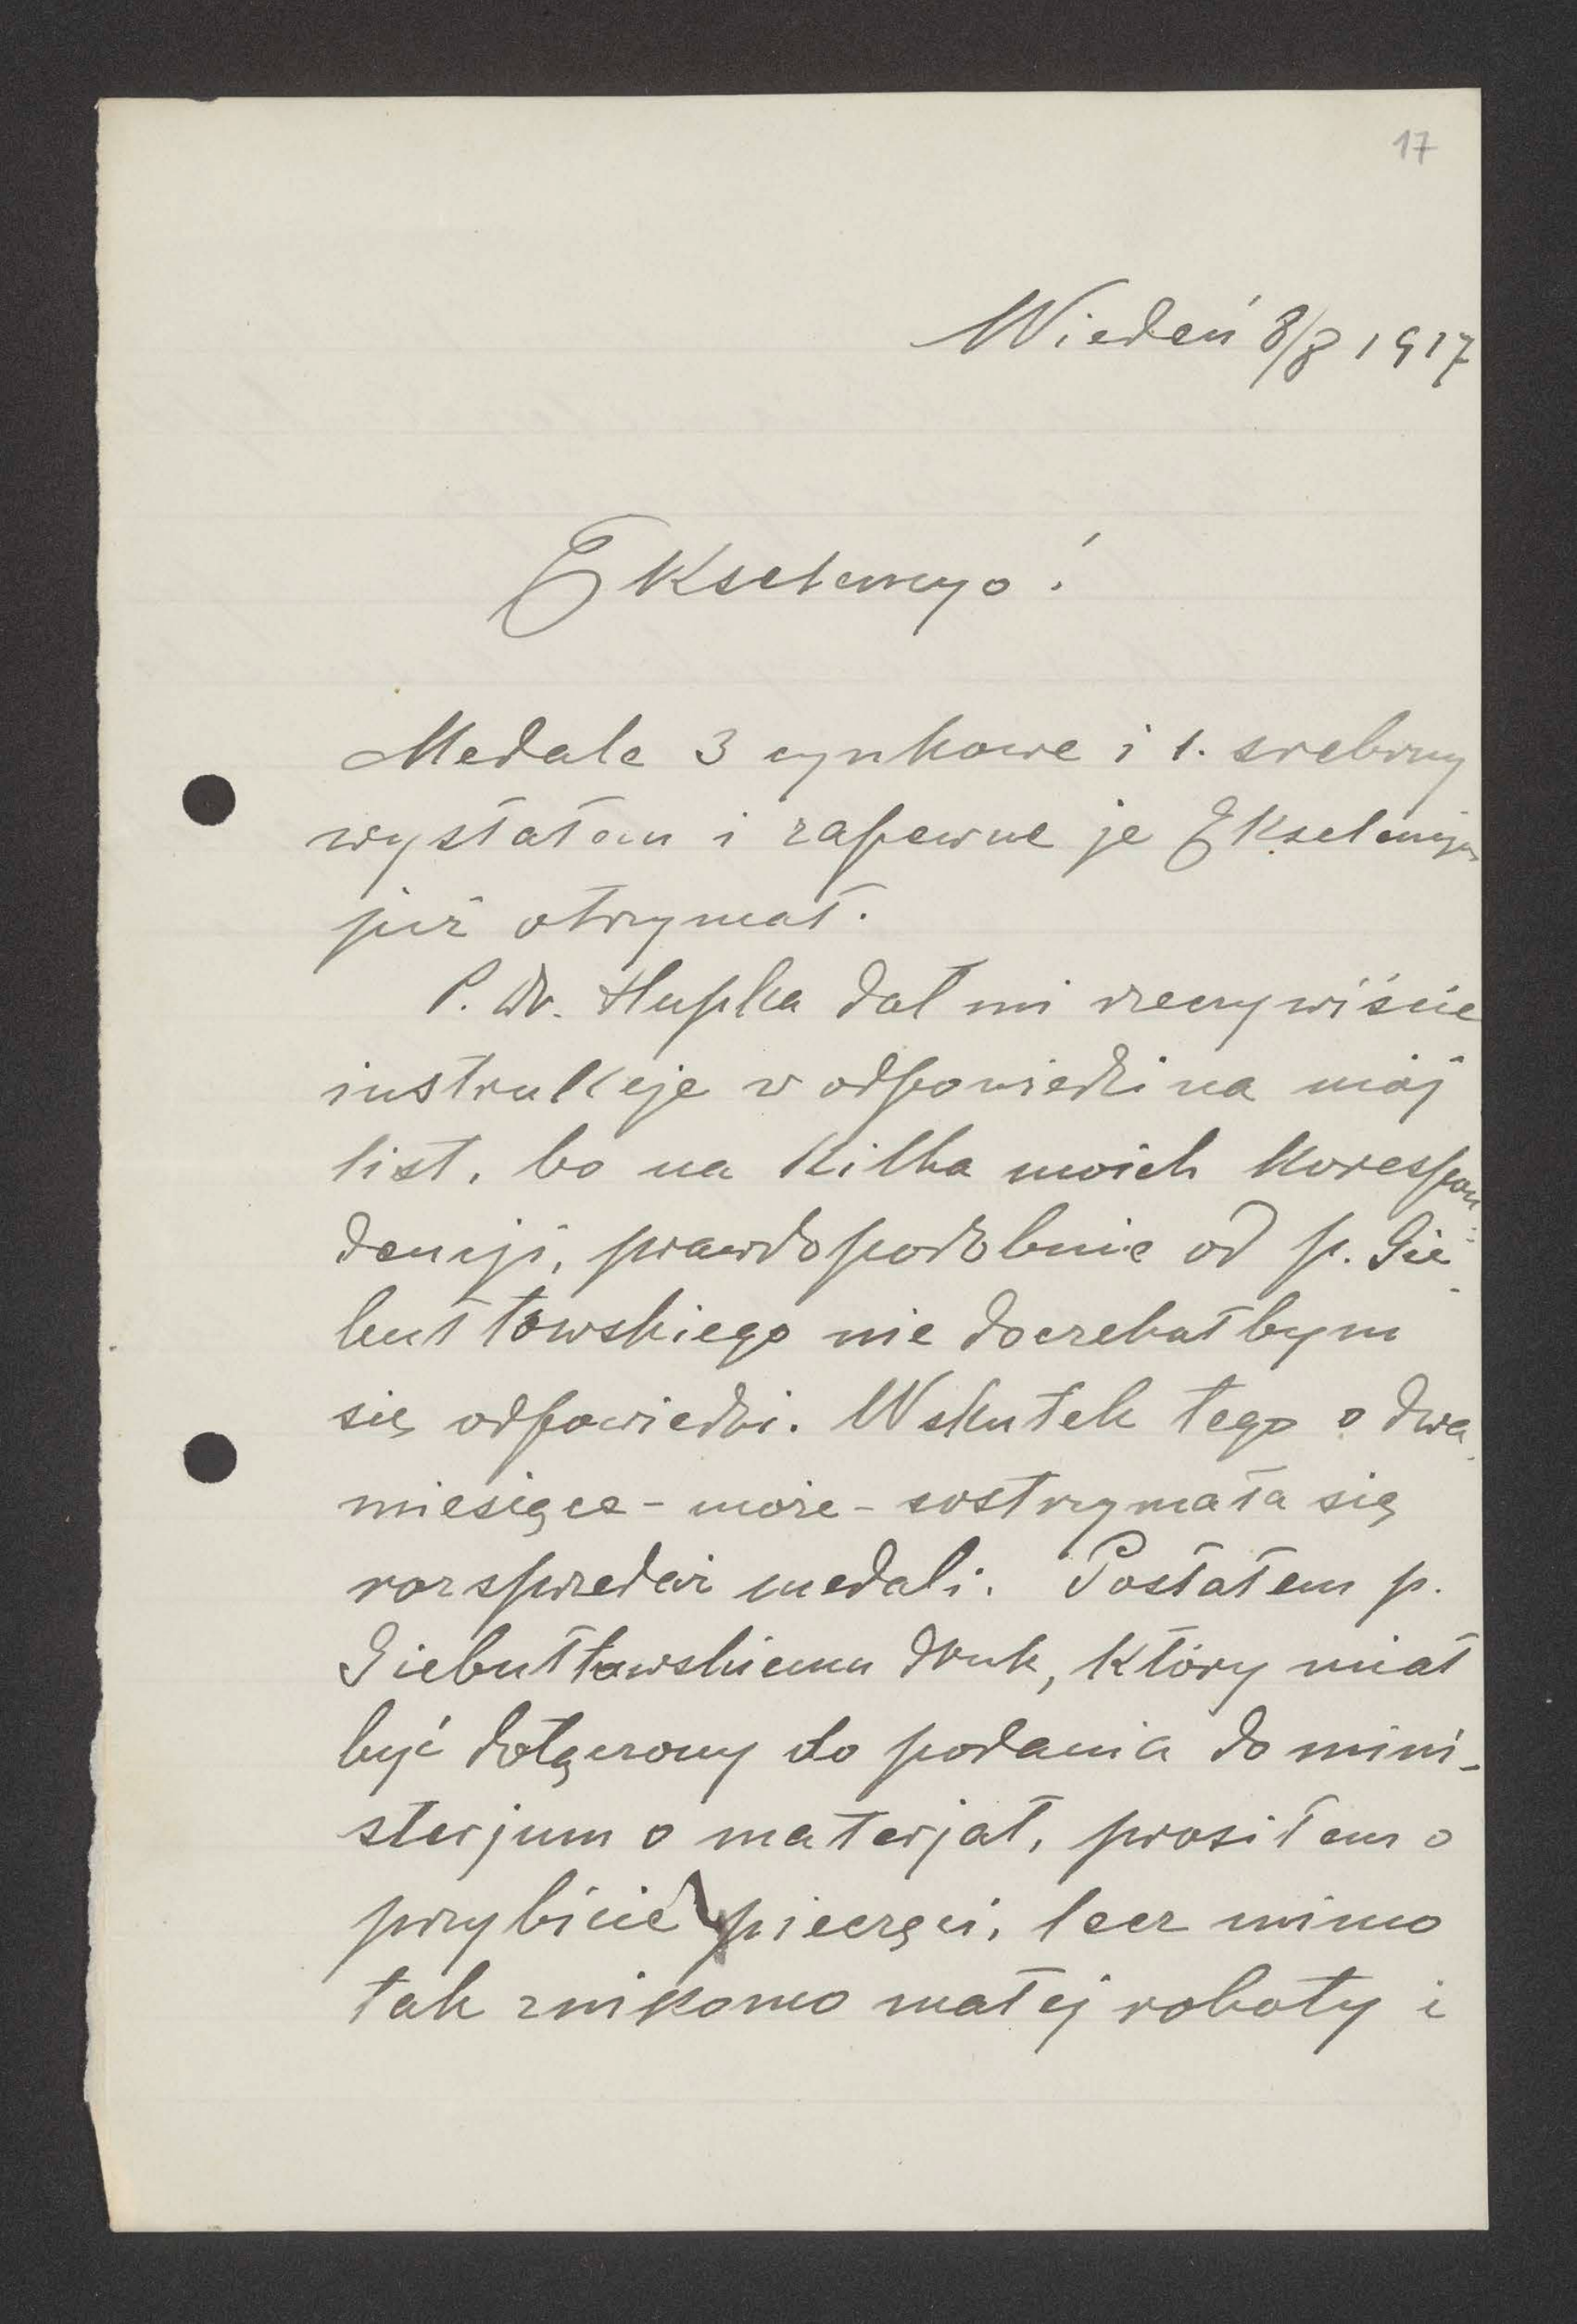 17
Wiedeń 8/8 1917
Ekscelencyo!
Medale 3 cynkowe i 1. srebrny
wysłałem i zapewne je Ekscelencja
już otrzymał.
P. Dr. Hupka dał mi rzeczywiście
instrukcje w odpowiedzi na mój
list, bo na kilka moich korespon
dencji, prawdopodobnie od p. Gie-
bułtowskiego nie doczekałbym
się odpowiedzi. Wskutek tego o dwa
miesiące - może - wstrzymała się
rozsprzedaż medali. Posłałem p.
Giebułtowskiemu druk, który miał
być dołączony do podania do mini-
sterjum o materjał, prosiłem o
przybicie pieczęci, lecz mimo
tak znikomo małej roboty i